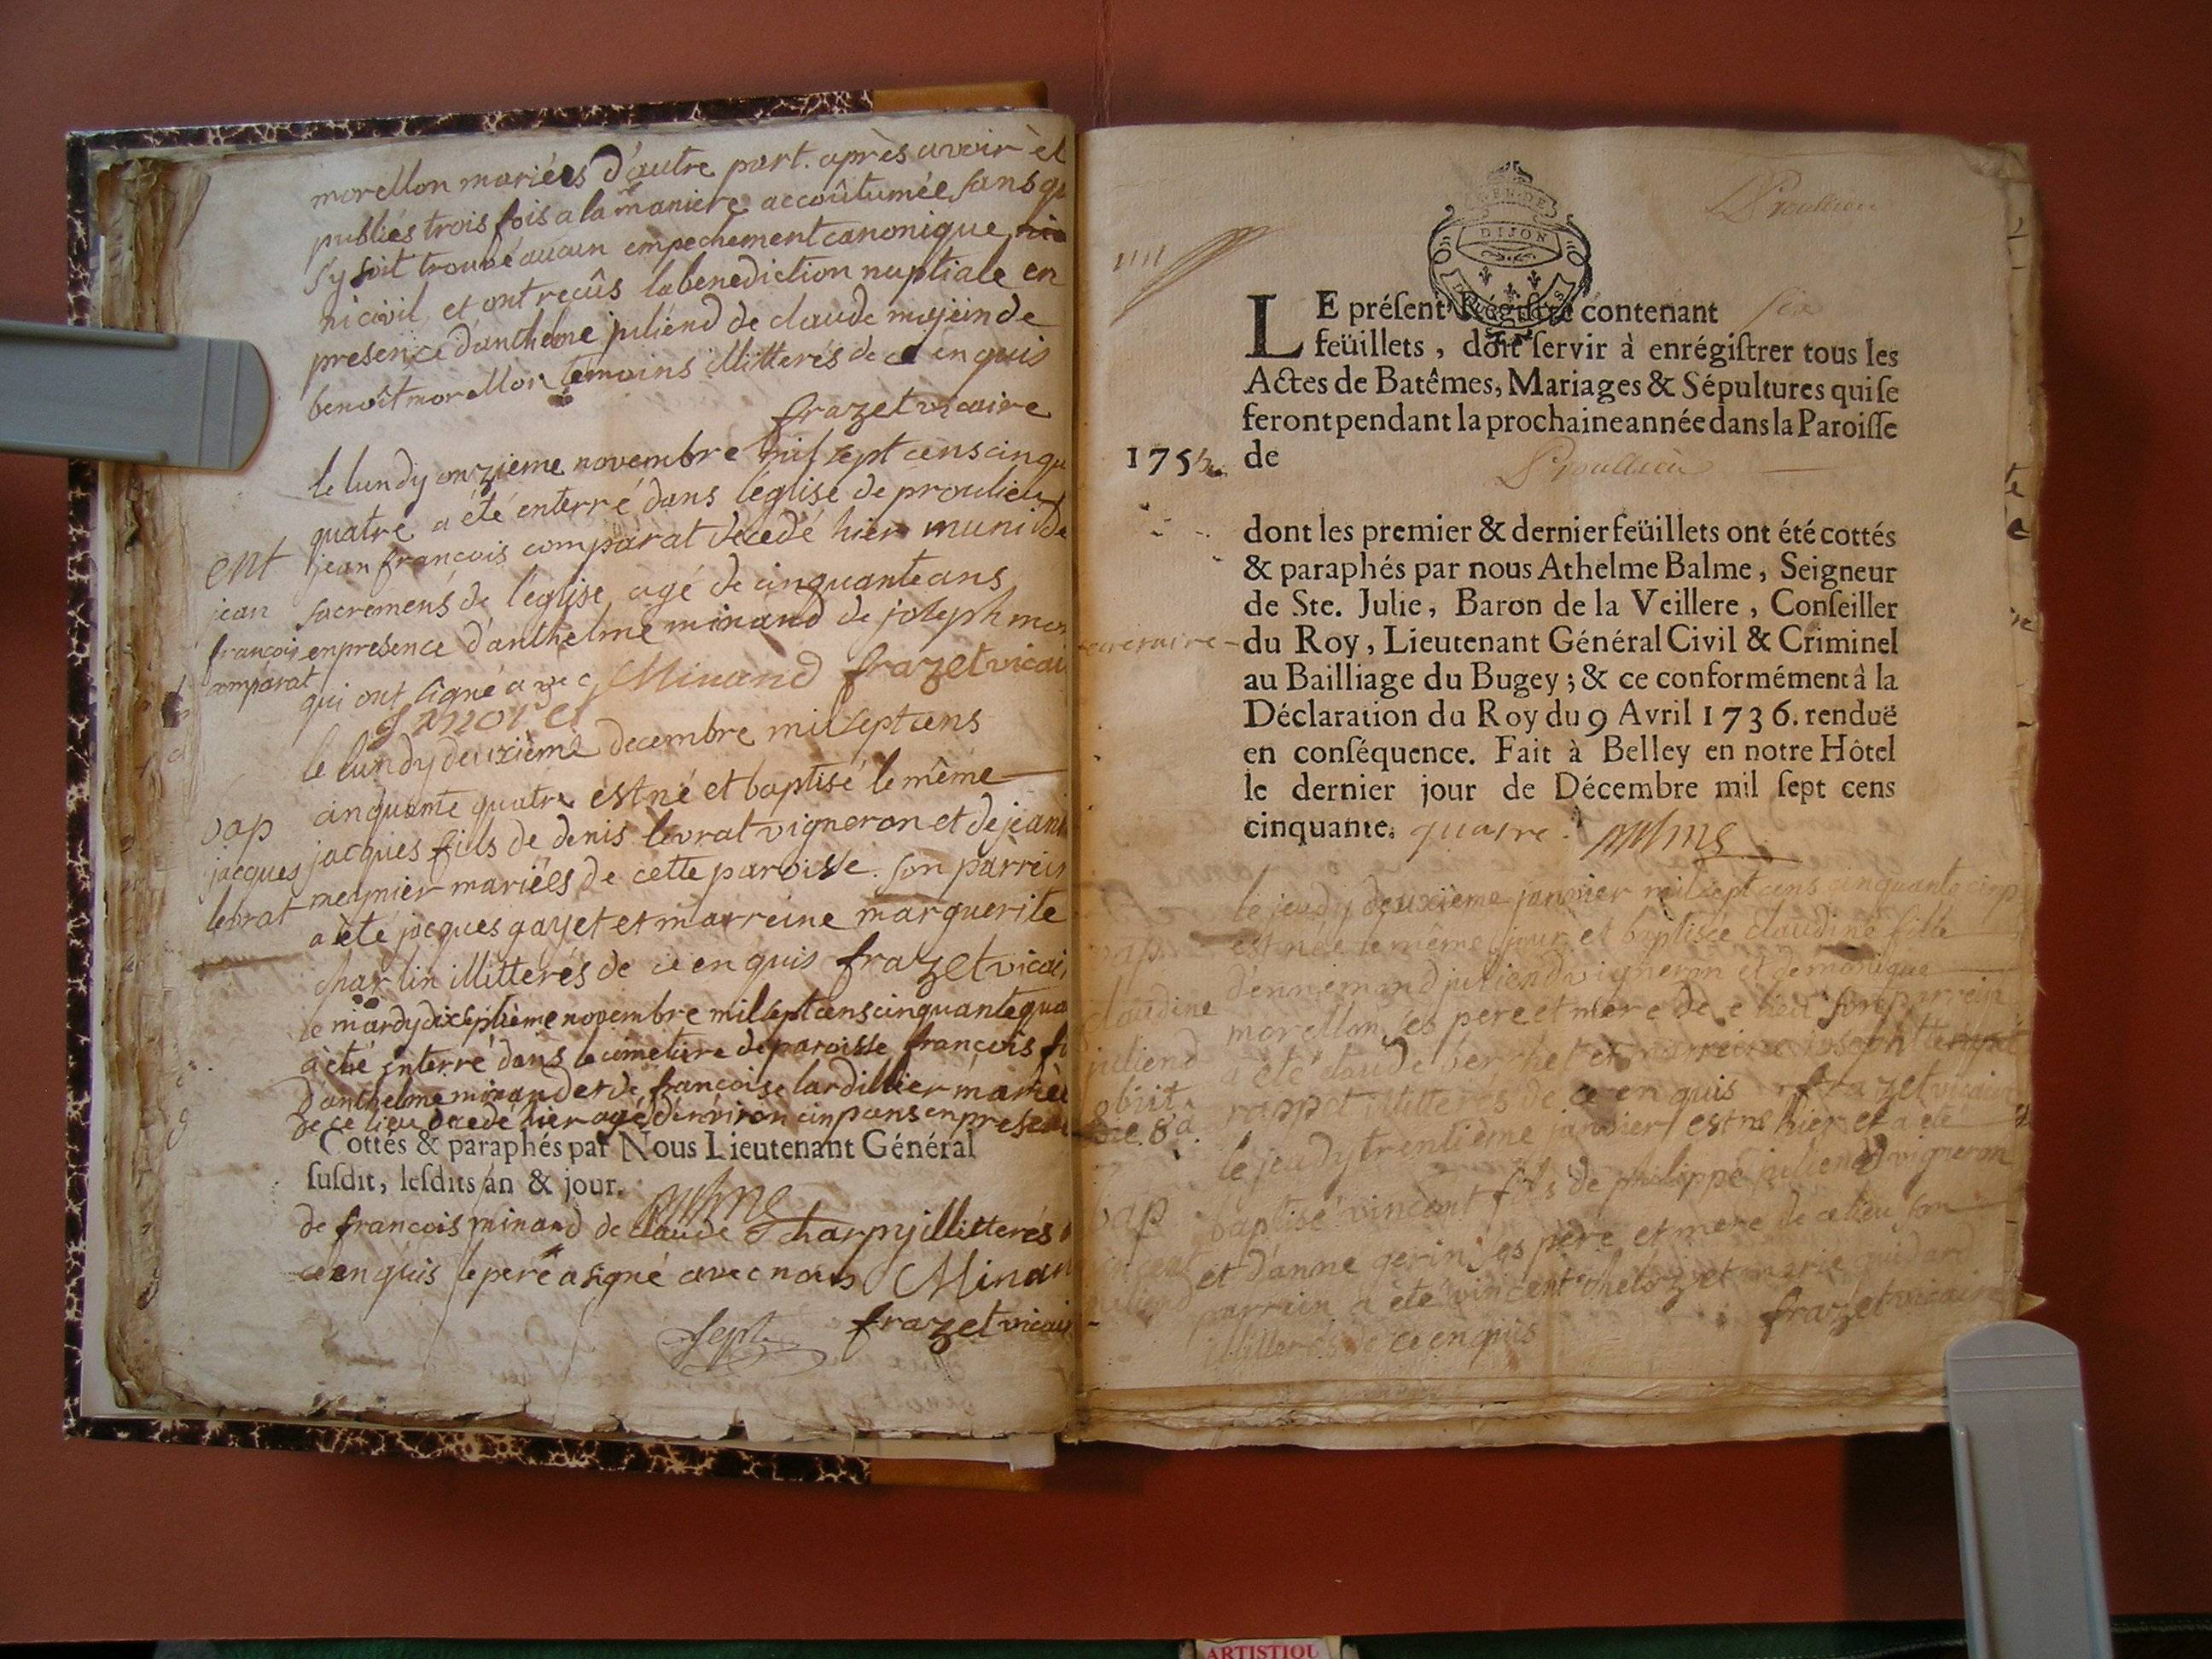 morellon mariées d'autre part. après avoir èt
publiés trois fois a la maniere accoûtumée sans qu
s'y soit trouvé aucun empechement canonique
ni civil et ont reçûs la benediction nuptiale en
presence d'anthelme juliend de claude mojein de
benoît morellon temoins illitterés de ce enquis
frazet vicaire
le lundy onzieme novembre mil sept cens cinqu
quatre a été enterré dans l'église de proulieu
jean françois comparat decedé hier muni de
sacremens de l'eglise agé de cinquante ans
en presence d'anthelme minand de joseph
qui ont signé avec Minand frazet vicai
ent
jean
françois
comparat
le lundy deuxième decembre mil sept cens
cinquante quatre est né et baptisé le même
jacques fils de denis levrat vigneron et de jean
meunier mariées de cette paroisse. son parrein
a été jacques gayet et marreine marguerite
charlin illitterés de ce enquis frazet vicai
bap
jacques
levrat
le mardy dixseptième novembre mil sept cens cinquante qua
a été enterré dans le cimetiere de paroisse françois fi
d'anthelme minand et de françoise lardillier mariées
de ce lieu decedé hier agé d'environ cinq ans en presen
Cottés & paraphés par Nous Lieutenant Général
ſuſdit, leſdits an & jour.
de francois minand de claude charpy illitterés
ce enquis le pere a signé avec nous Minan
frazet vicai
Sept
Proulieu
LE préſent Régiſtre contenant six
feüillets, doit ſervir à enrégiſtrer tous les
Actes de Batêmes, Mariages & Sépultures qui ſe
feront pendant la prochaine année dans la Paroiſſe
175 de Proulieu
dont les premier & dernier feüillets ont été cottés
& paraphés par nous Athelme Balme, Seigneur
de Ste. Julie, Baron de la Veillere, Conſeiller
du Roy, Lieutenant Général Civil & Criminel
au Bailliage du Bugey ; & ce conformément à la
Déclaration du Roy du 9 Avril 1736. renduë
en conſéquence. Fait à Belley en notre Hôtel
le dernier jour de Décembre mil ſept cens
cinquante. quatre.
DIJON
le jeudy deuxième janvier mil sept cens cinquante cinq
est née le même jour et baptisée claudine fille
d'ennemond juliend vigneron et de monique
morellon ses pere et mere de ce lieu son parrein
a été claude berchet et marreine
illitterés de ce enquis frazet vicaire
bap
claudine
juliend
obiit
le jeudy trentième janvier est né hier et a été
baptisé vincent fils de philippe juliend vigneron
et d'anne gerin ses pere et mere de ce lieu son
parrein a été vincent et marie guidard
illitterés de ce enquis frazet vicaire
bap
vincent
juliend
ARTISTIQU